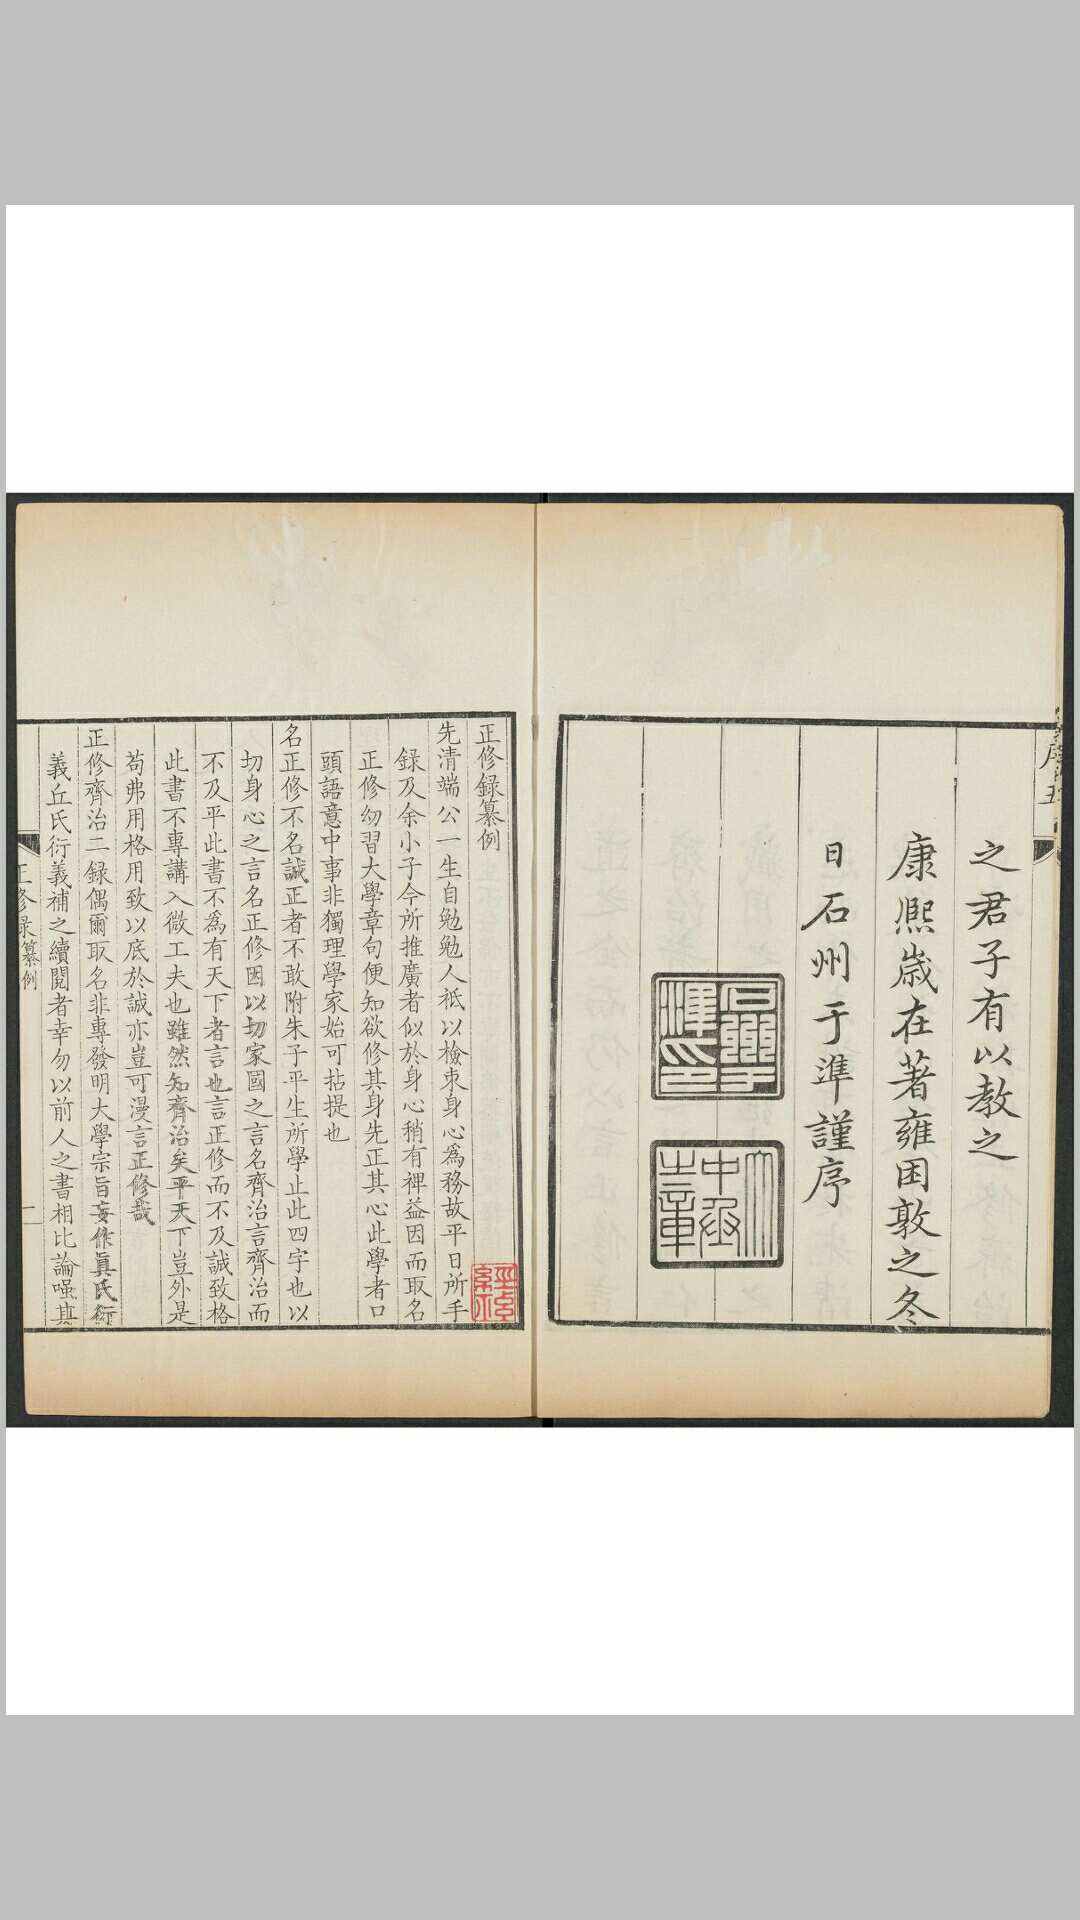 之君子有以教之
康熙歲在著雍困敦之冬
日石州于準謹序
石州于準印
大中丞章
正修録纂例
先清端公一生自勉勉人祇以檢束身心爲務故平日所手
録及余小子今所推廣者似於身心稍有裨益因而取名
正修幼習大學章句便知欲修其身先正其心此學者口
頭語意中事非獨理學家始可拈提也
名正修不名誠正者不敢附朱子平生所學止此四字也以
切身心之言名正修因以切家國之言名齊治言齊治而
不及平此書不爲有天下者言也言正修而不及誠致格
此書不專講入微工夫也雖然知齊治矣平天下豈外是
苟弗用格用致以底於誠亦豈可漫言正修哉
正修齊治二録偶爾取名非專發明大學宗旨妄作眞氏衍
義丘氏衍義補之續閱者幸勿以前人之書相比論嗤其
正修録纂例
一